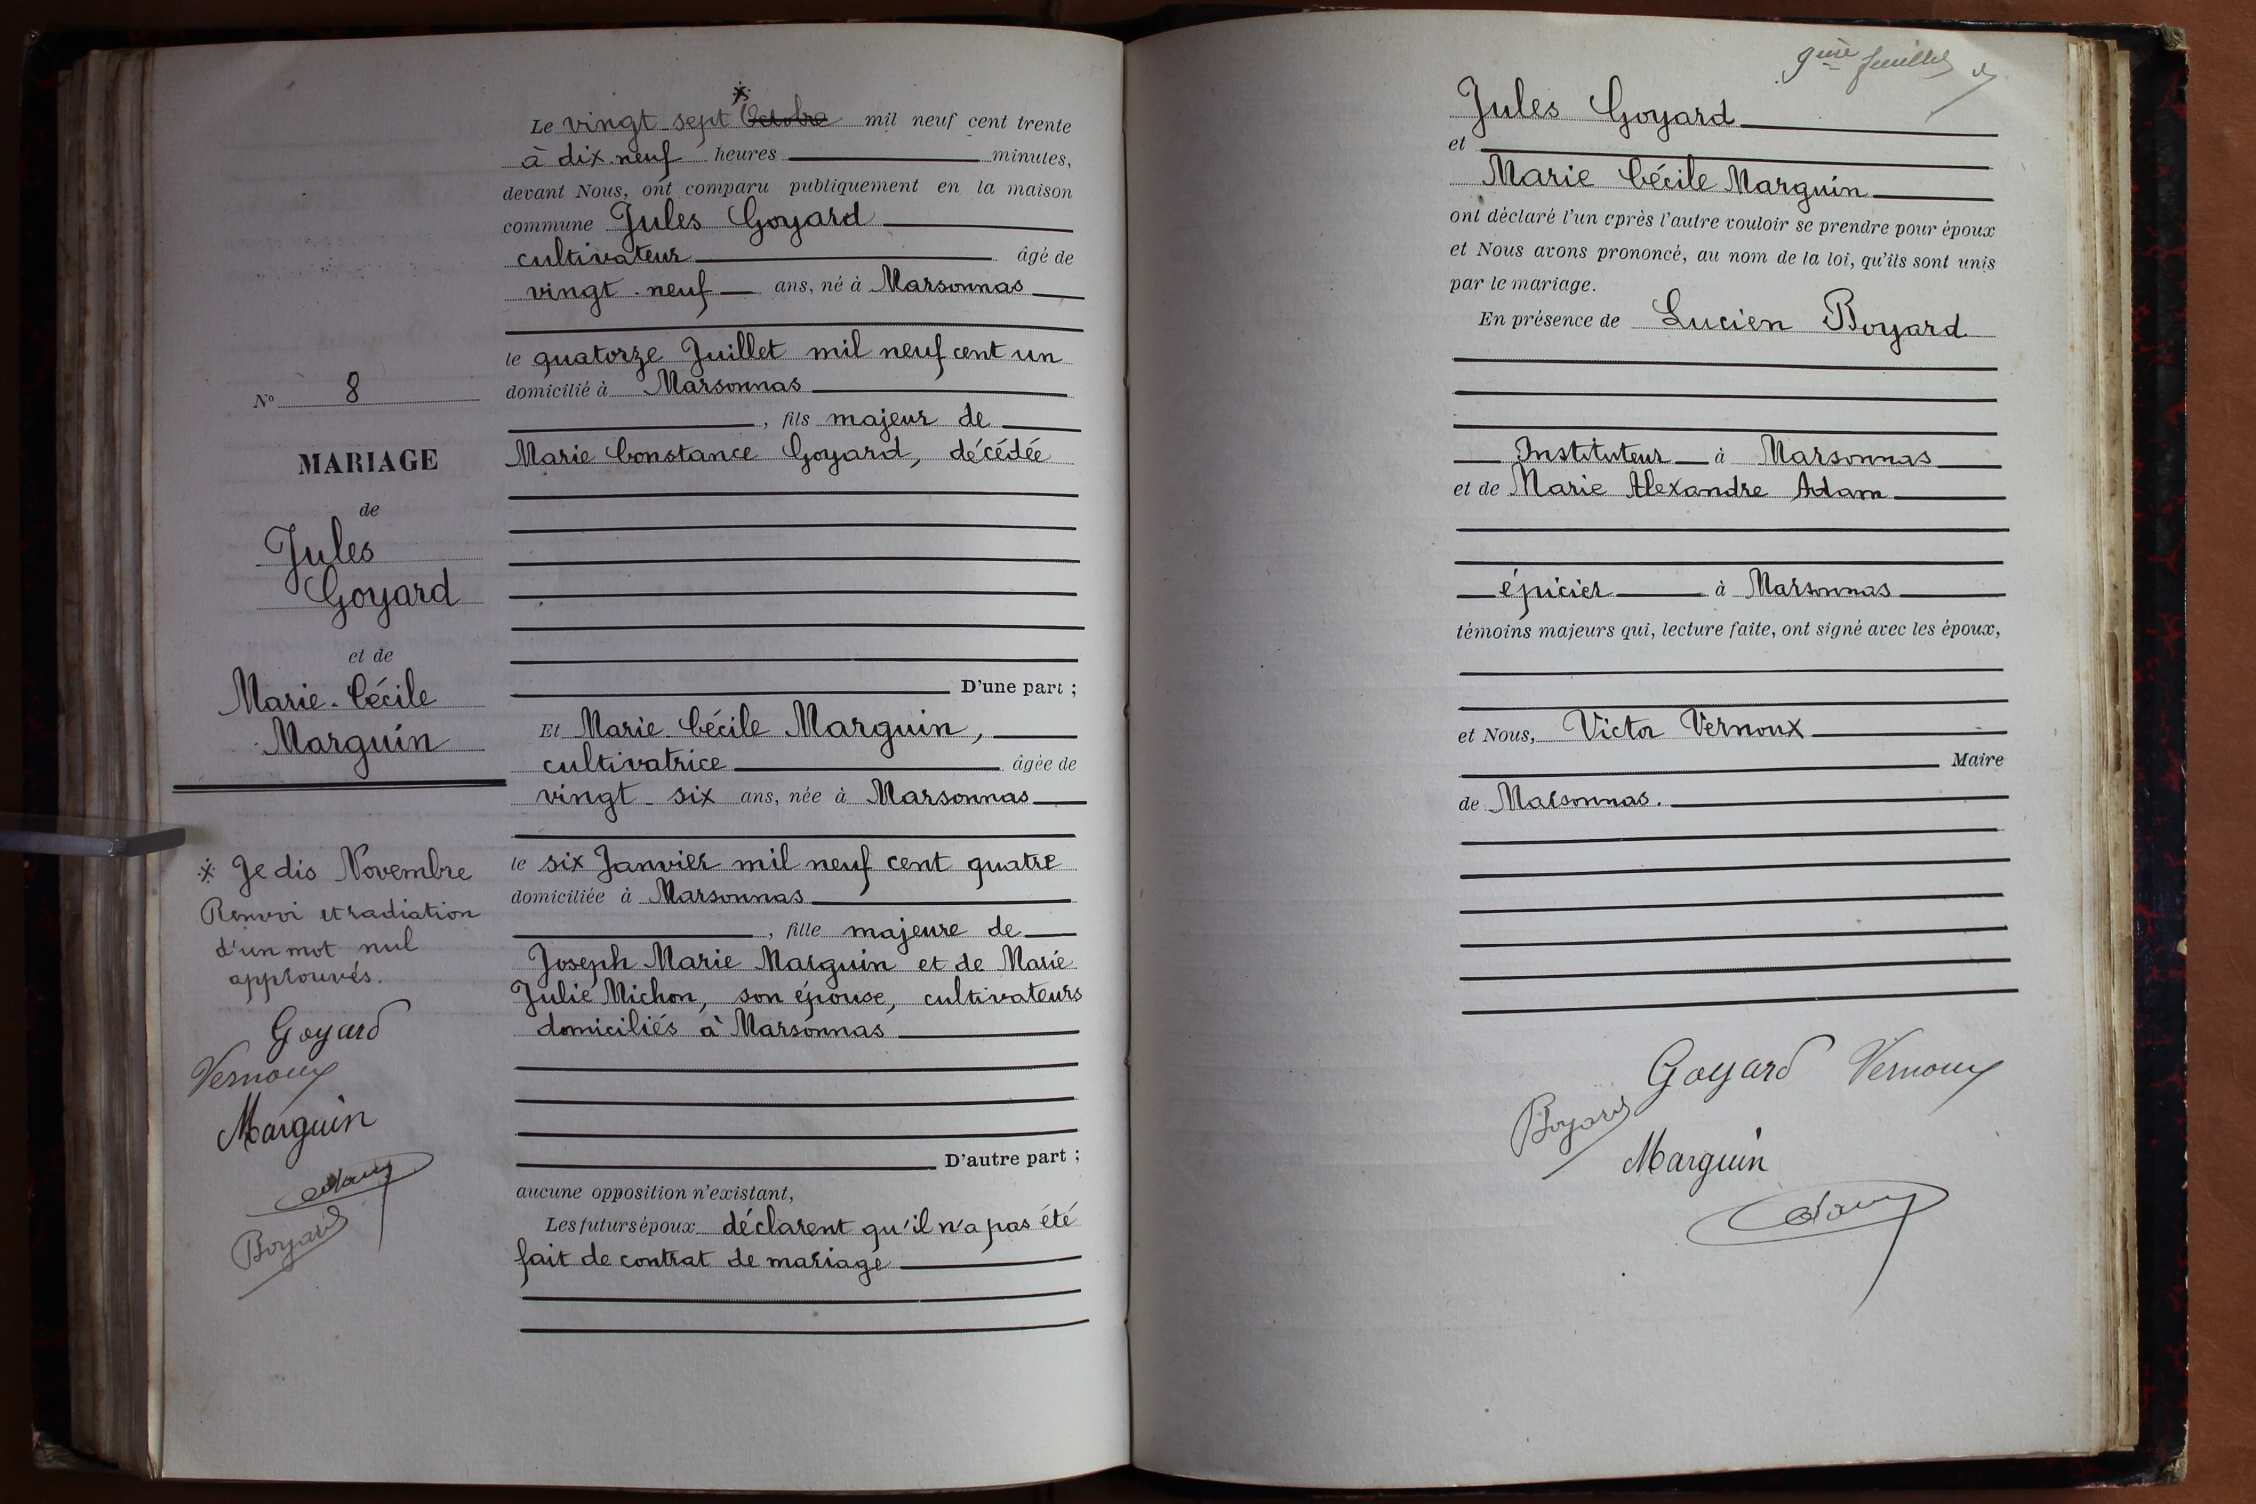 N° 8
MARIAGE
de
Jules
Goyard
et de
Marie-Cécile
Marguin
※ Je dis Novembre
Renvoi et radiation
d'un mot nul
approuvés.
Goyard
Vernoux
Marguin
Adam
Boyard
※
Le vingt sept Octobre mil neuf cent trente
à dix-neuf heures minutes,
devant Nous, ont comparu publiquement en la maison
commune Jules Goyard
cultivateur âgé de
vingt-neuf ans, né à Marsonnas
le quatorze Juillet mil neuf cent un
domicilié à Marsonnas
, fils majeur de
Marie Constance Goyard, décédée
D'une part ;
Et Marie Cécile Marguin,
cultivatrice âgée de
vingt-six ans, née à Marsonnas
le six Janvier mil neuf cent quatre
domiciliée à Marsonnas
, fille majeure de
Joseph Marie Marguin et de Marie
Julie Michon, son épouse, cultivateurs
domiciliés à Marsonnas
D'autre part ;
aucune opposition n'existant,
Les futurs époux déclarent qu'il n'a pas été
fait de contrat de mariage
9ème feuillet
Jules Goyard
et
Marie Cécile Marguin
ont déclaré l'un après l'autre vouloir se prendre pour époux
et Nous avons prononcé, au nom de la loi, qu'ils sont unis
par le mariage.
En présence de Lucien Boyard
Instituteur à Marsonnas
et de Marie Alexandre Adam
épicier à Marsonnas
témoins majeurs qui, lecture faite, ont signé avec les époux,
et Nous, Victor Vernoux
Maire
de Marsonnas.
Goyard Vernoux
Boyard
Marguin
Adam